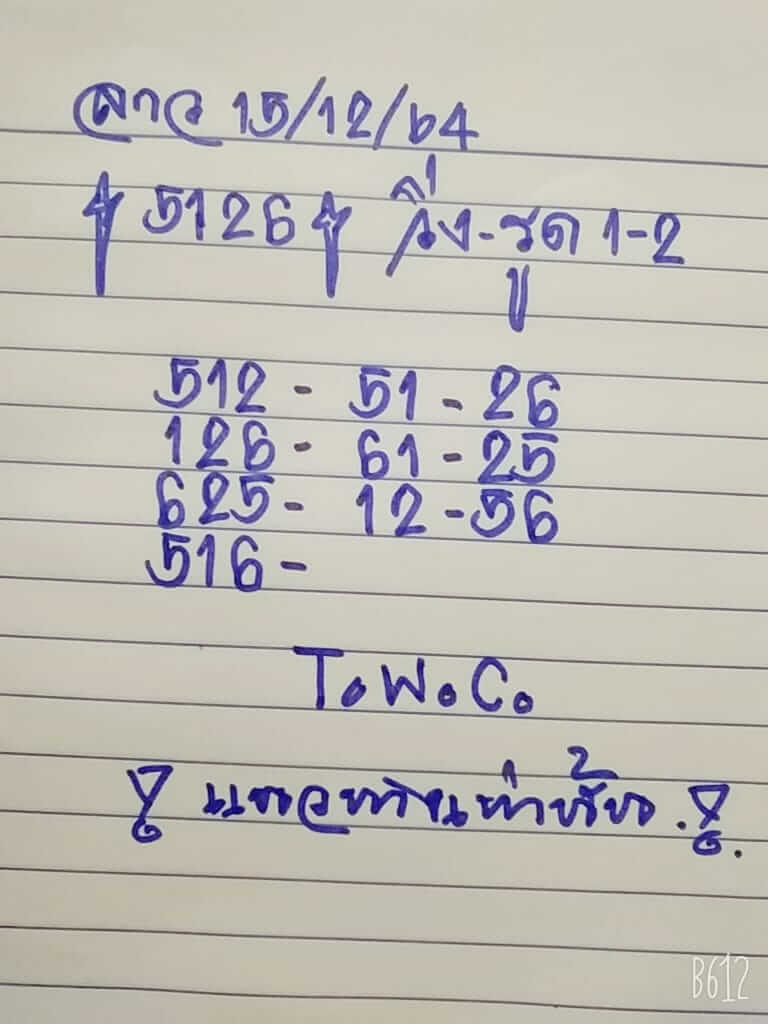 ลาว 15/12/64
5126 วิ่ง-รูด 1-2
512 - 51 - 26
126 - 61 - 25
625 - 12 - 56
516 -
T.W.C.
แนวทางเท่านั้น
B612